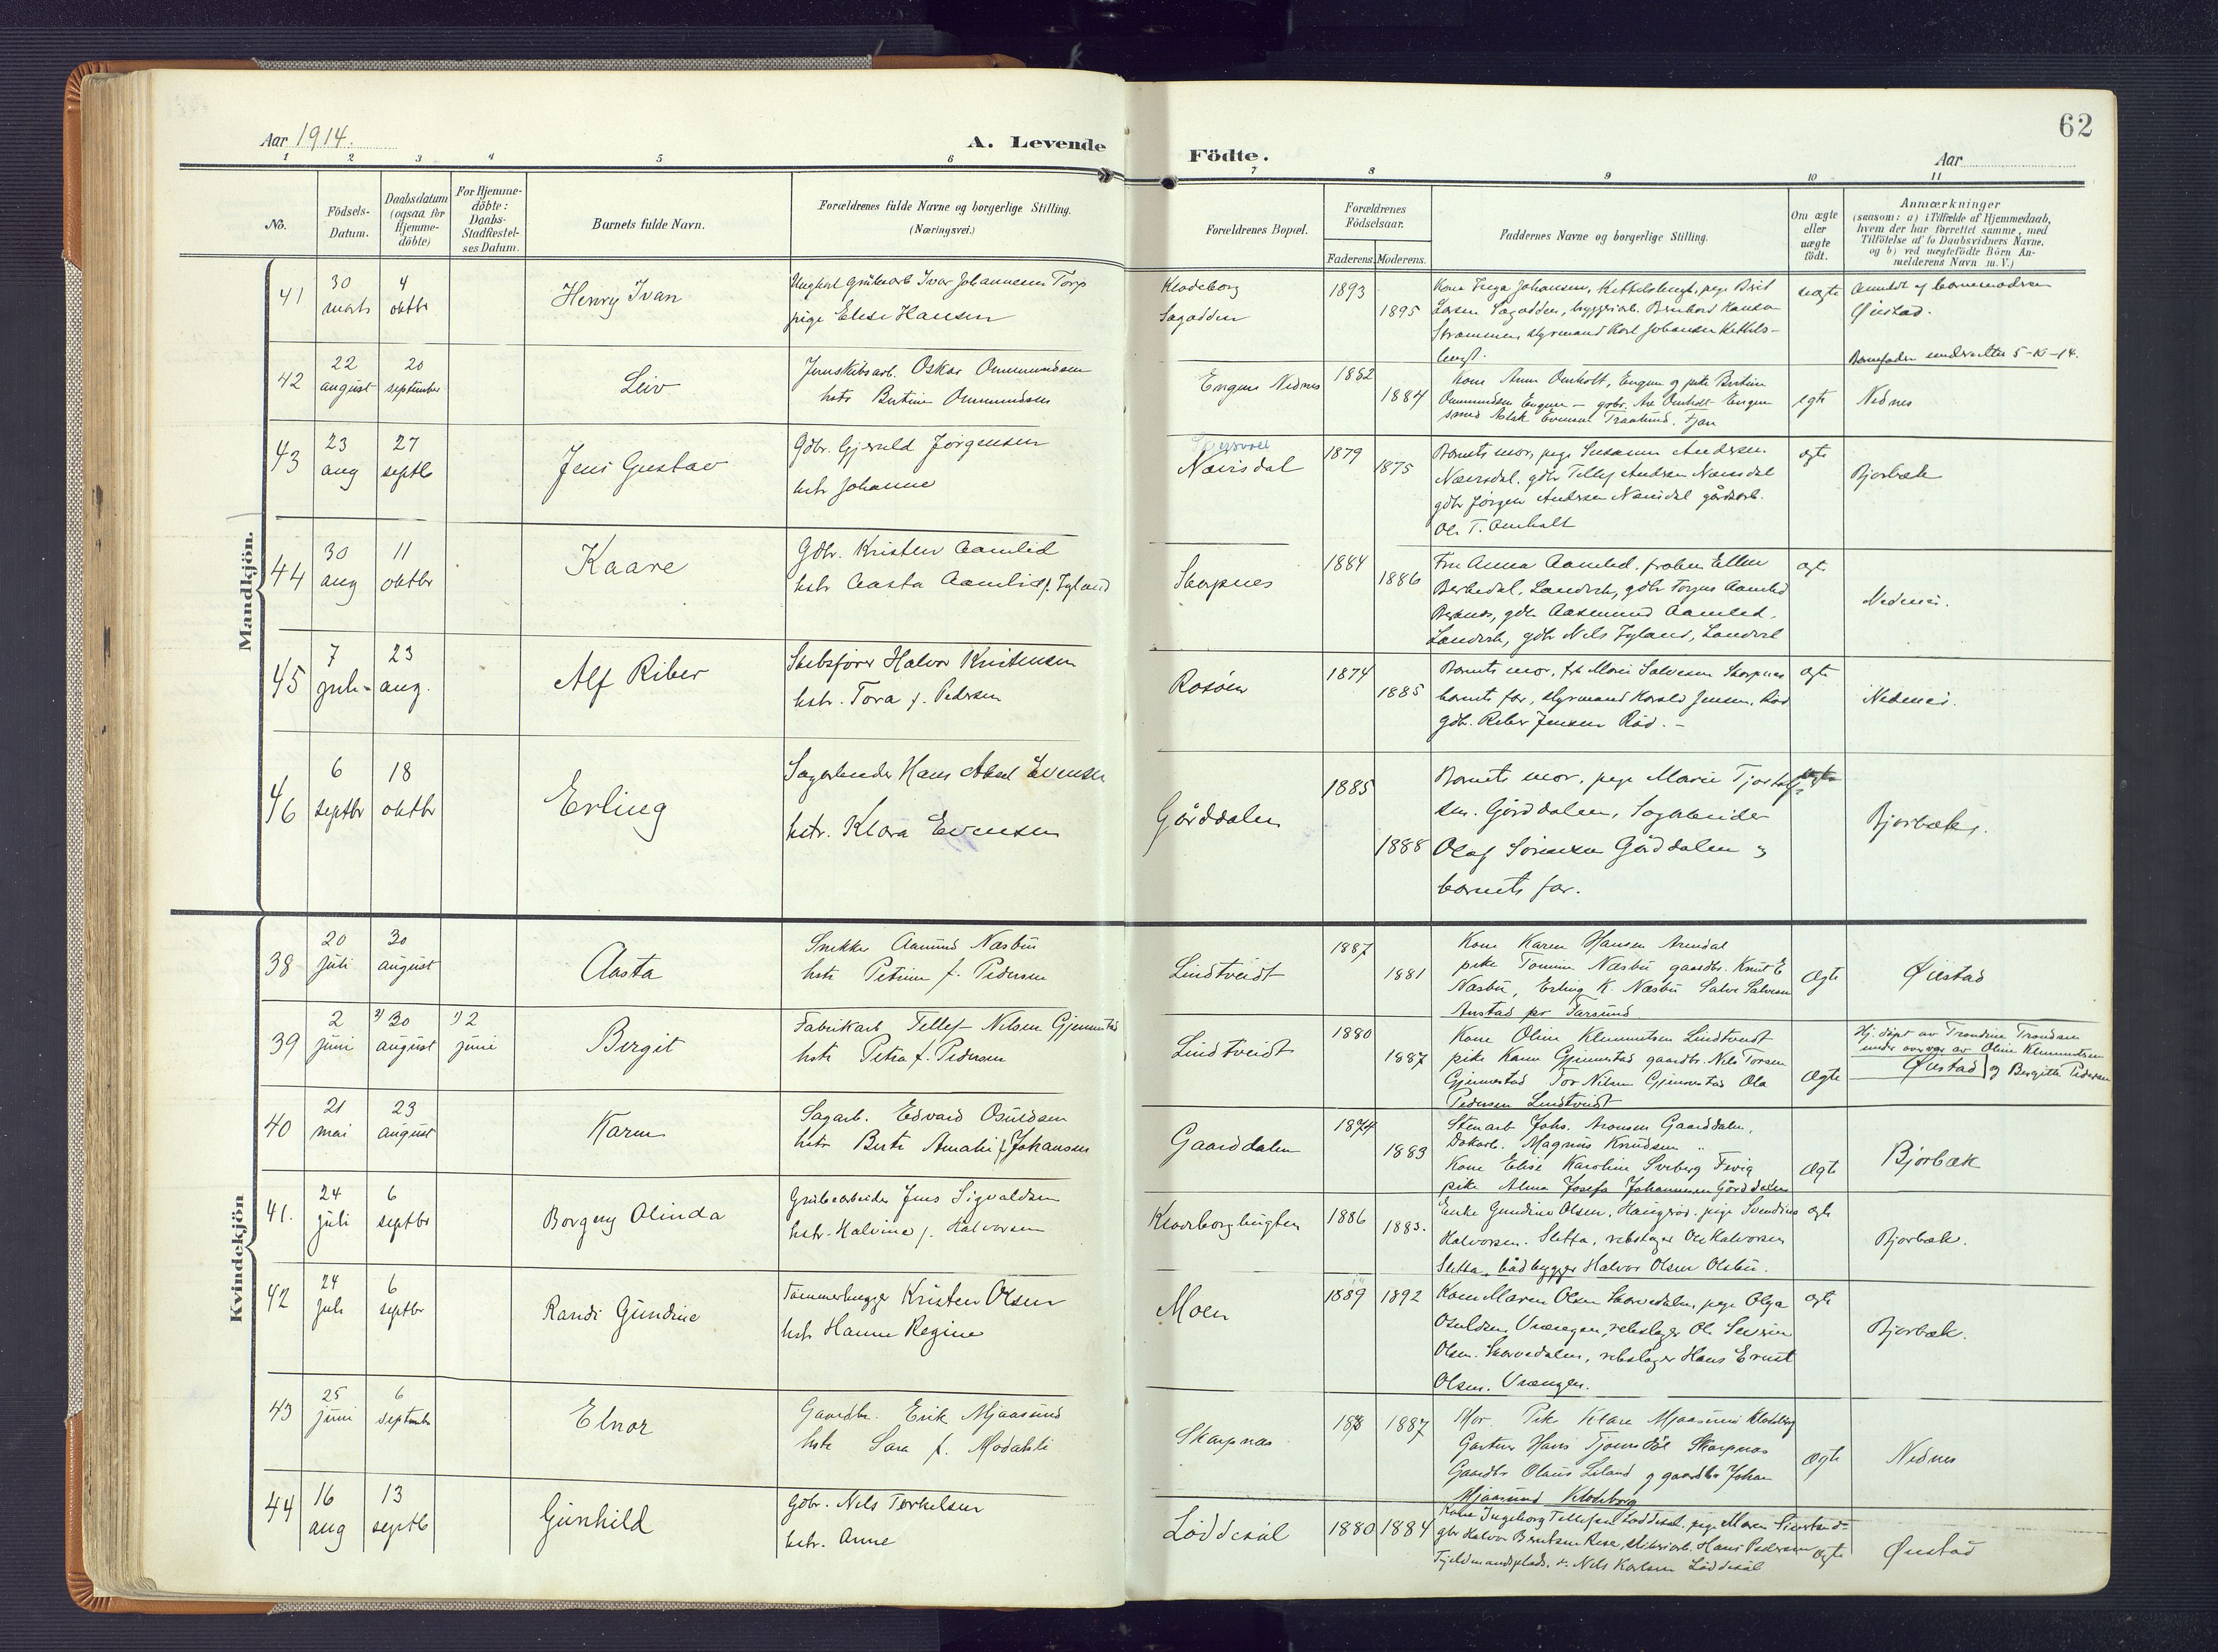 62
Aar 1914.
A. Levende
Födte.
Aar
1 2 3 4 5 6 7 8 9 10 11
No.
Födsels-Datum.
Daabsdatum (ogsaa for Hjemme-döbte)
For Hjemme-döbte: Daabs-Stadfæstel-ses Datum.
Barnets fulde Navn.
Forældrenes fulde Navne og borgerlige Stilling. (Næringsvei.)
Forældrenes Bopæl.
Forældrenes Födselsaar.
Faderens. Moderens.
Faddernes Navne og borgerlige Stilling.
Om ægte eller uægte födt.
Anmærkninger
(saasom: a) i Tilfælde af Hjemmedaab,
hvem der har forrettet samme, med
Tilföielse af to Daabsvidners Navne,
og b) ved uægtefödte Börn An-
melderens Navn m. V.)
Mandkjön.
41
30 marts
4 oktbr
Henry Ivan
Ungkarl grubearb Ivar Johannesen Torp
pige Elise Hansen
Klodeborg
1893
1895
uægte
Øiestad.
42
22 august
20 september
Leiv
Oskar Ommundsen
hstr Bertine Ommundsen
Engene Nednes
1882
1884
Kone Anne Omholt, Engene og pike Bertine
Ommundsen Engene – gbr. Are Omholt Engene
egte
Nednes
43
23 aug
27 septb
Jens Gustav
Gdbr. Gjeruld Jörgensen
hstr Johanne
Næsisdal
1879
1875
Barnets mor, pige Susanne Andersen
gdbr Jörgen Andersen
Ole T. Omholt
ægte
Bjorbæk
44
30 aug
11 oktbr
Kaare
Gdbr. Kristen Aamlid
hstr Aasta Aamlid f. Fyland
Skarpnes
1884
1886
Fru Anna Aamlid, frøken Ellen
ægte
Nednes.
45
7 juli
23 aug.
Alf Riber
Skibsförer Halvor Kristensen
hstr. Tora f. Pedersen
1874
1885
Barnets mor, frk Marie Salvesen Skarpnes
barnets far, styrmand Harald Jensen, Röd
gdbr. Riber Jensen Röd. –
ægte
Nednes.
46
6 septbr
18 oktbr
Erling
Sagarbeider Hans Aksel Evensen
hstr. Klara Evensen
Gårddalen
1885
1888
Barnets mor, pige Marie
Gårddalen, Sagarbeider
Olaf Sörensen Gårddalen og
barnets far.
ægte
Bjorbæk.
Kvindekjön
38
20 juli
30 august
Aasta
Snekker Aanund Næsbü
hstr Petrine f. Pedersen
Lindtveidt
1887
1881
Kone Karen Hansen Arendal
pike Tomine Næsbü gaardbr. Knut E
Næsbü, Erling K. Næsbü Salve Salvesen
Ægte
Øiestad
39
2 juni
30 august
2 juni
Birgit
Fabrikarb Tellef Nilsen Gjennestad
hstr Petra f. Pedersen
Lindtveidt
1880
1887
Kone Oline Klemmetsen Lindtveidt
pike Karen Gjennestad gaardbr. Nils Torsen
Gjennestad Tor Nilsen Gjennestad Ola
Pedersen Lindtveidt
Ægte
Hj. döpt av Trondine Trondsen
under overvær av Oline Klemmetsen
Øiestad og Birgitte Pedersen
40
21 mai
23 august
Karen
Sagarb. Edvard Osuldsen
hstr Berte Amalie f Johansen
Gaarddalen
1874
1883
Stenarb Johs. Aronsen Gaarddalen.
Dokarb. Magnus Knudsen "
Kone Elise Karoline Sveberg Fevig
pike Alma Josefa Johannesen Gårddalen
Ægte
Bjorbæk
41.
24 juli
6 septbr
Borgny Olinda
Grubearbeider Jens Sigvaldsen
hstr. Halvine f. Halvorsen
Klodeborgbugten
1886
1883.
Enke Gundine Olsen, pige Svendine
Halvorsen. Sletta, rebslager Ole Halvorsen
Sletta, bådbygger Halvor Olsen Olsbü.
ægte
Bjorbæk.
42
24 juli
6 septbr
Randi Gundine
Tömmerhugger Kristen Olsen
hstr. Hanne Regine
Moen
1889
1892
Kone Maren Olsen pige Olga
Osuldsen Vrængen, rebslager Ole Severin
Olsen. rebslager Hans Ernst
Olsen. Vrængen.
ægte
Bjorbæk.
43
25 juni
6 septembr
Elnor
Gaardbr. Erik Mjaasund
hstr Sara f. Modahli
Skarpnæs
1887
Mor. Pike Klara Mjaasund Klodeborg
Gartner Hans Skarpnæs
Gaardbr Olaus Leland og gaardbr Johan
Mjaasund Klodeborg
Ægte
Nednes
44
16 aug
13 septb
Gunhild
Gdbr. Nils Terkelsen
hstr. Anne
Löddesöl
1880
1884
Kone Ingeborg Tellefsen Löddesöl. pige Maren
gbr Halvor Hans Pedersen
Nils Karlsen Löddesöl
ægte
Øiestad